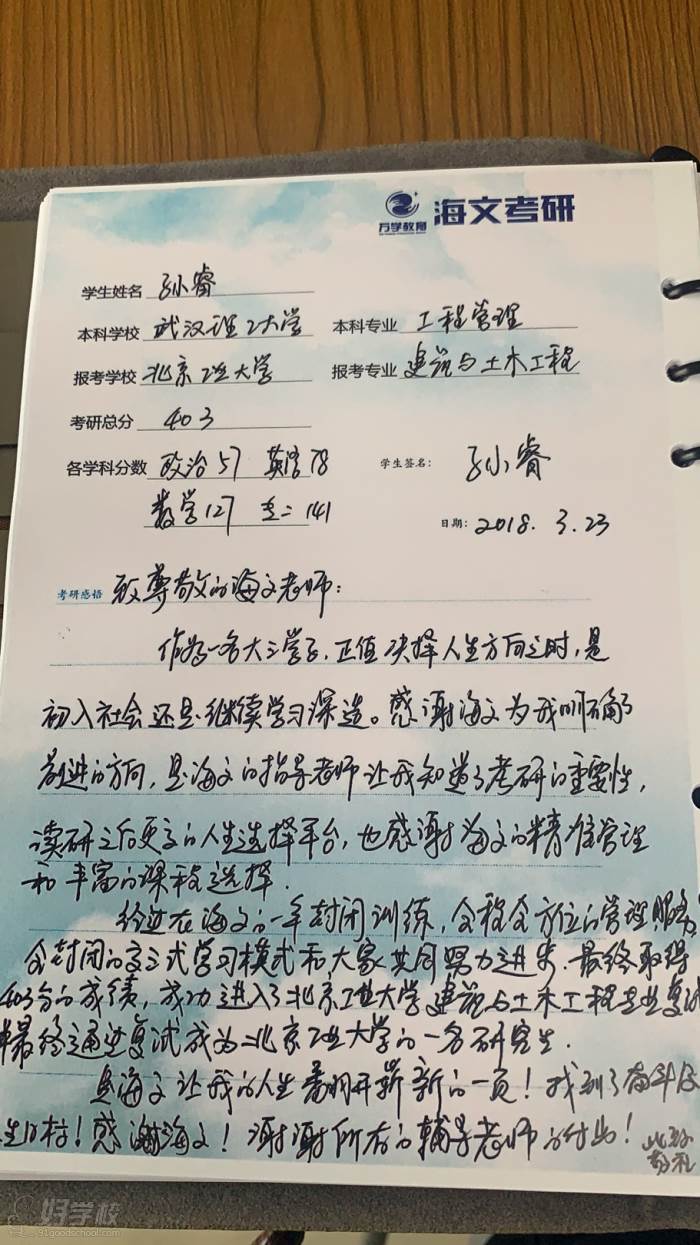 万学教育 海文考研
学生姓名 孙睿
本科学校 武汉理工大学 本科专业 工程管理
报考学校 北京工业大学 报考专业 建筑与土木工程
考研总分 403
各学科分数 政治57 英语78 学生签名: 孙睿
数学127 专二 141 日期: 2018. 3. 23
考研感悟 致尊敬的海文老师:
作为一名大三学子,正值决择人生方向之时,是
初入社会还是继续学习深造。感谢海文为我明确了
前进的方向,是海文的指导老师让我知道了考研的重要性,
读研之后更高的人生选择平台,也感谢海文的精准管理
和丰富的课程选择.
经过在海文的一年封闭训练,全程全方位的管理服务,
全封闭的 式学习模式和大家共同努力进步.最终取得
403分的成绩,成功进入了北京工业大学建筑与土木工程专业复试
最终通过复试成为北京工业大学的一名研究生.
是海文让我的人生翻开崭新的一页!找到了奋斗
感谢海文!谢谢所有的辅导老师的付出! 此致
敬礼
好学校
91goodschool.com